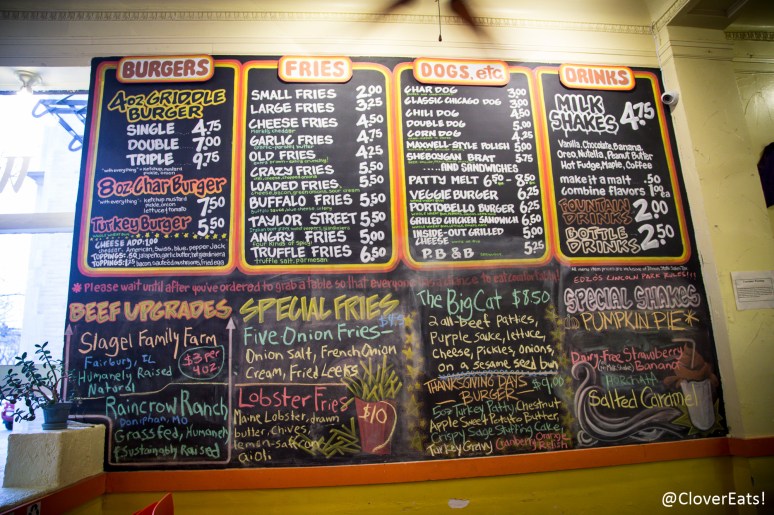 BURGERS
4oz GRIDDLE
BURGER
SINGLE 4.75
DOUBLE 7.00
TRIPLE 9.75
"with everything" = ketchup, mustard
pickle, onion
8oz Char Burger
"with everything" = ketchup, mustard 7.50
pickle, onion
lettuce & tomato
Turkey Burger 5.50
CHEESE ADD: 1.00
cheddar, American, Swiss, blue, pepper Jack
TOPPINGS: .50
TOPPINGS: 1.75
FRIES
SMALL FRIES 2.00
LARGE FRIES 3.25
CHEESE FRIES 4.50
Merkts cheddar
GARLIC FRIES 4.75
garlic-parsley butter
OLD FRIES 4.25
CRAZY FRIES 5.50
LOADED FRIES 5.50
BUFFALO FRIES 5.50
TAYLOR STREET 5.50
ANGRY FRIES 5.00
four kinds of spicy
TRUFFLE FRIES 6.50
truffle salt, parmesan
DOGS, etc.
CHAR DOG 3.00
CLASSIC CHICAGO DOG 3.00
CHILI DOG 4.50
DOUBLE DOG 5.00
CORN DOG 4.35
MAXWELL-STYLE POLISH 5.00
SHEBOYGAN BRAT 5.75
...AND SANDWICHES
PATTY MELT 6.50 - 8.50
VEGGIE BURGER 6.25
PORTOBELLO BURGER 6.25
GRILLED CHICKEN SANDWICH 6.50
INSIDE-OUT GRILLED
CHEESE 5.00
PB & B 5.25
DRINKS
MILK
SHAKES 4.75
Vanilla, Chocolate, Banana,
Oreo, Nutella, Peanut Butter
Hot Fudge, Maple, Coffee
make it a malt .50
combine flavors 1.00
FOUNTAIN
DRINKS 2.00
BOTTLE
DRINKS 2.50
* Please wait until after you've ordered to grab a table so that everyone has a chance to eat comfortably!
BEEF UPGRADES
Slagel Family Farm
Fairbury, IL
Humanely Raised
Natural
$3 per
4oz
Raincrow Ranch
Doniphan, MO
Grassfed, Humanely
& Sustainably Raised
SPECIAL FRIES
Five Onion Fries -
Onion Salt, French Onion
Cream, Fried Leeks
Lobster Fries
Maine Lobster, drawn
butter, Chives,
lemon-saffron
aioli
$10
The Big Cat $8.50
2 all-beef patties,
Purple Sauce, lettuce,
Cheese, Pickles, onions,
on a sesame seed bun
THANKSGIVING DAYS $9.00
BURGER
5oz Turkey Patty, Chestnut
Apple Sweet Potato Butter,
Crispy Sage Stuffing Cake
Turkey Gravy Cranberry Orange
Relish
EDZO'S LINCOLN PARK RULES!!!
SPECIAL SHAKES
PUMPKIN PIE*
Dairy-Free Strawberry
Banana
Salted Caramel
@CloverEats!